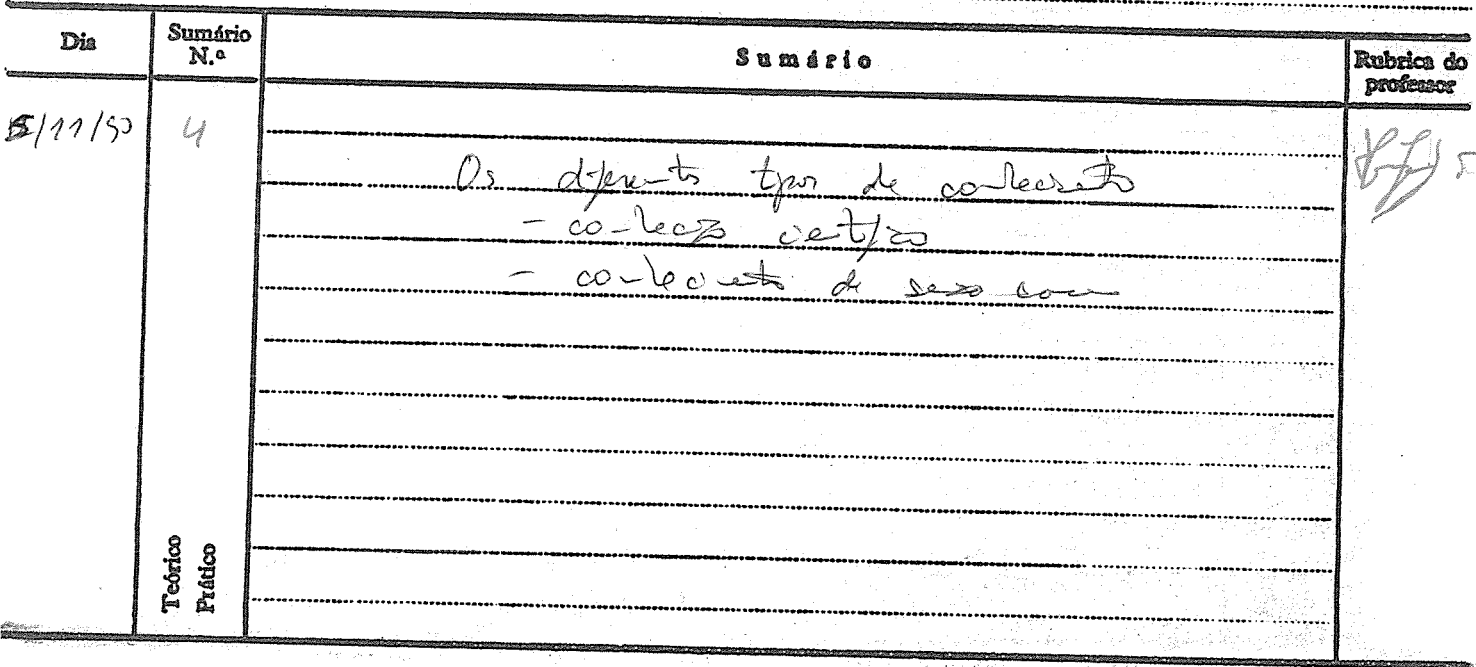 Dia
Sumário N.º
Sumário
Rubrica do professor
5/11/90
4
Os diferentes tipos de conhecimento
- conhecimento científico
- conhecimento de senso comum
Teórico
Prático